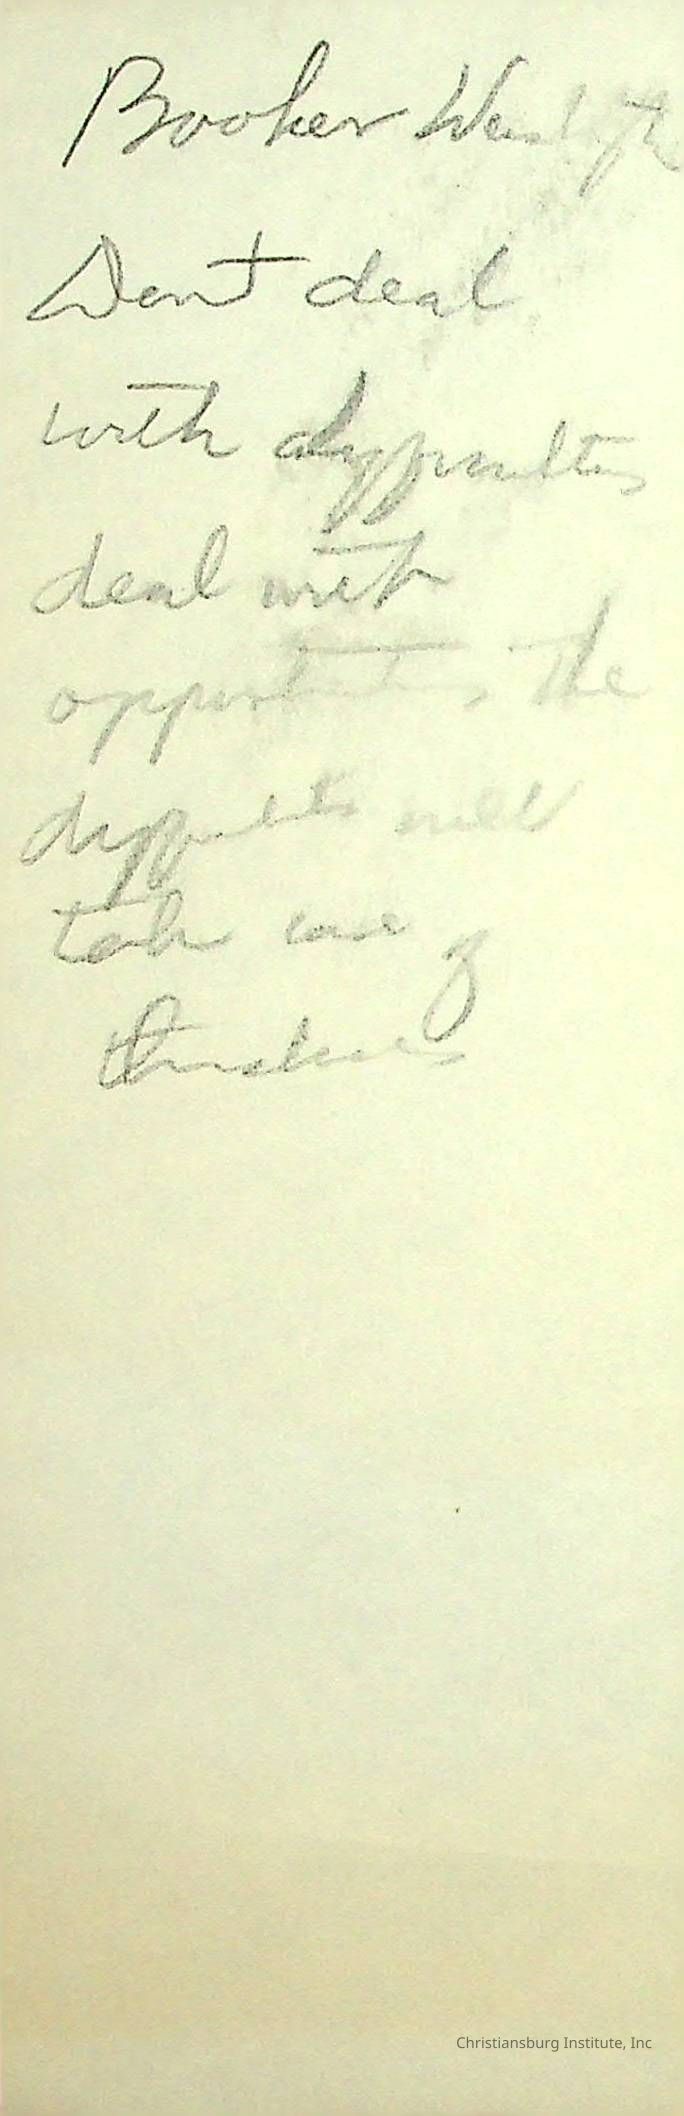 Booker Washington
Dont deal
with difficulties
deal with
opportunities, the
difficulties will
take care of
themselves
Christiansburg Institute, Inc